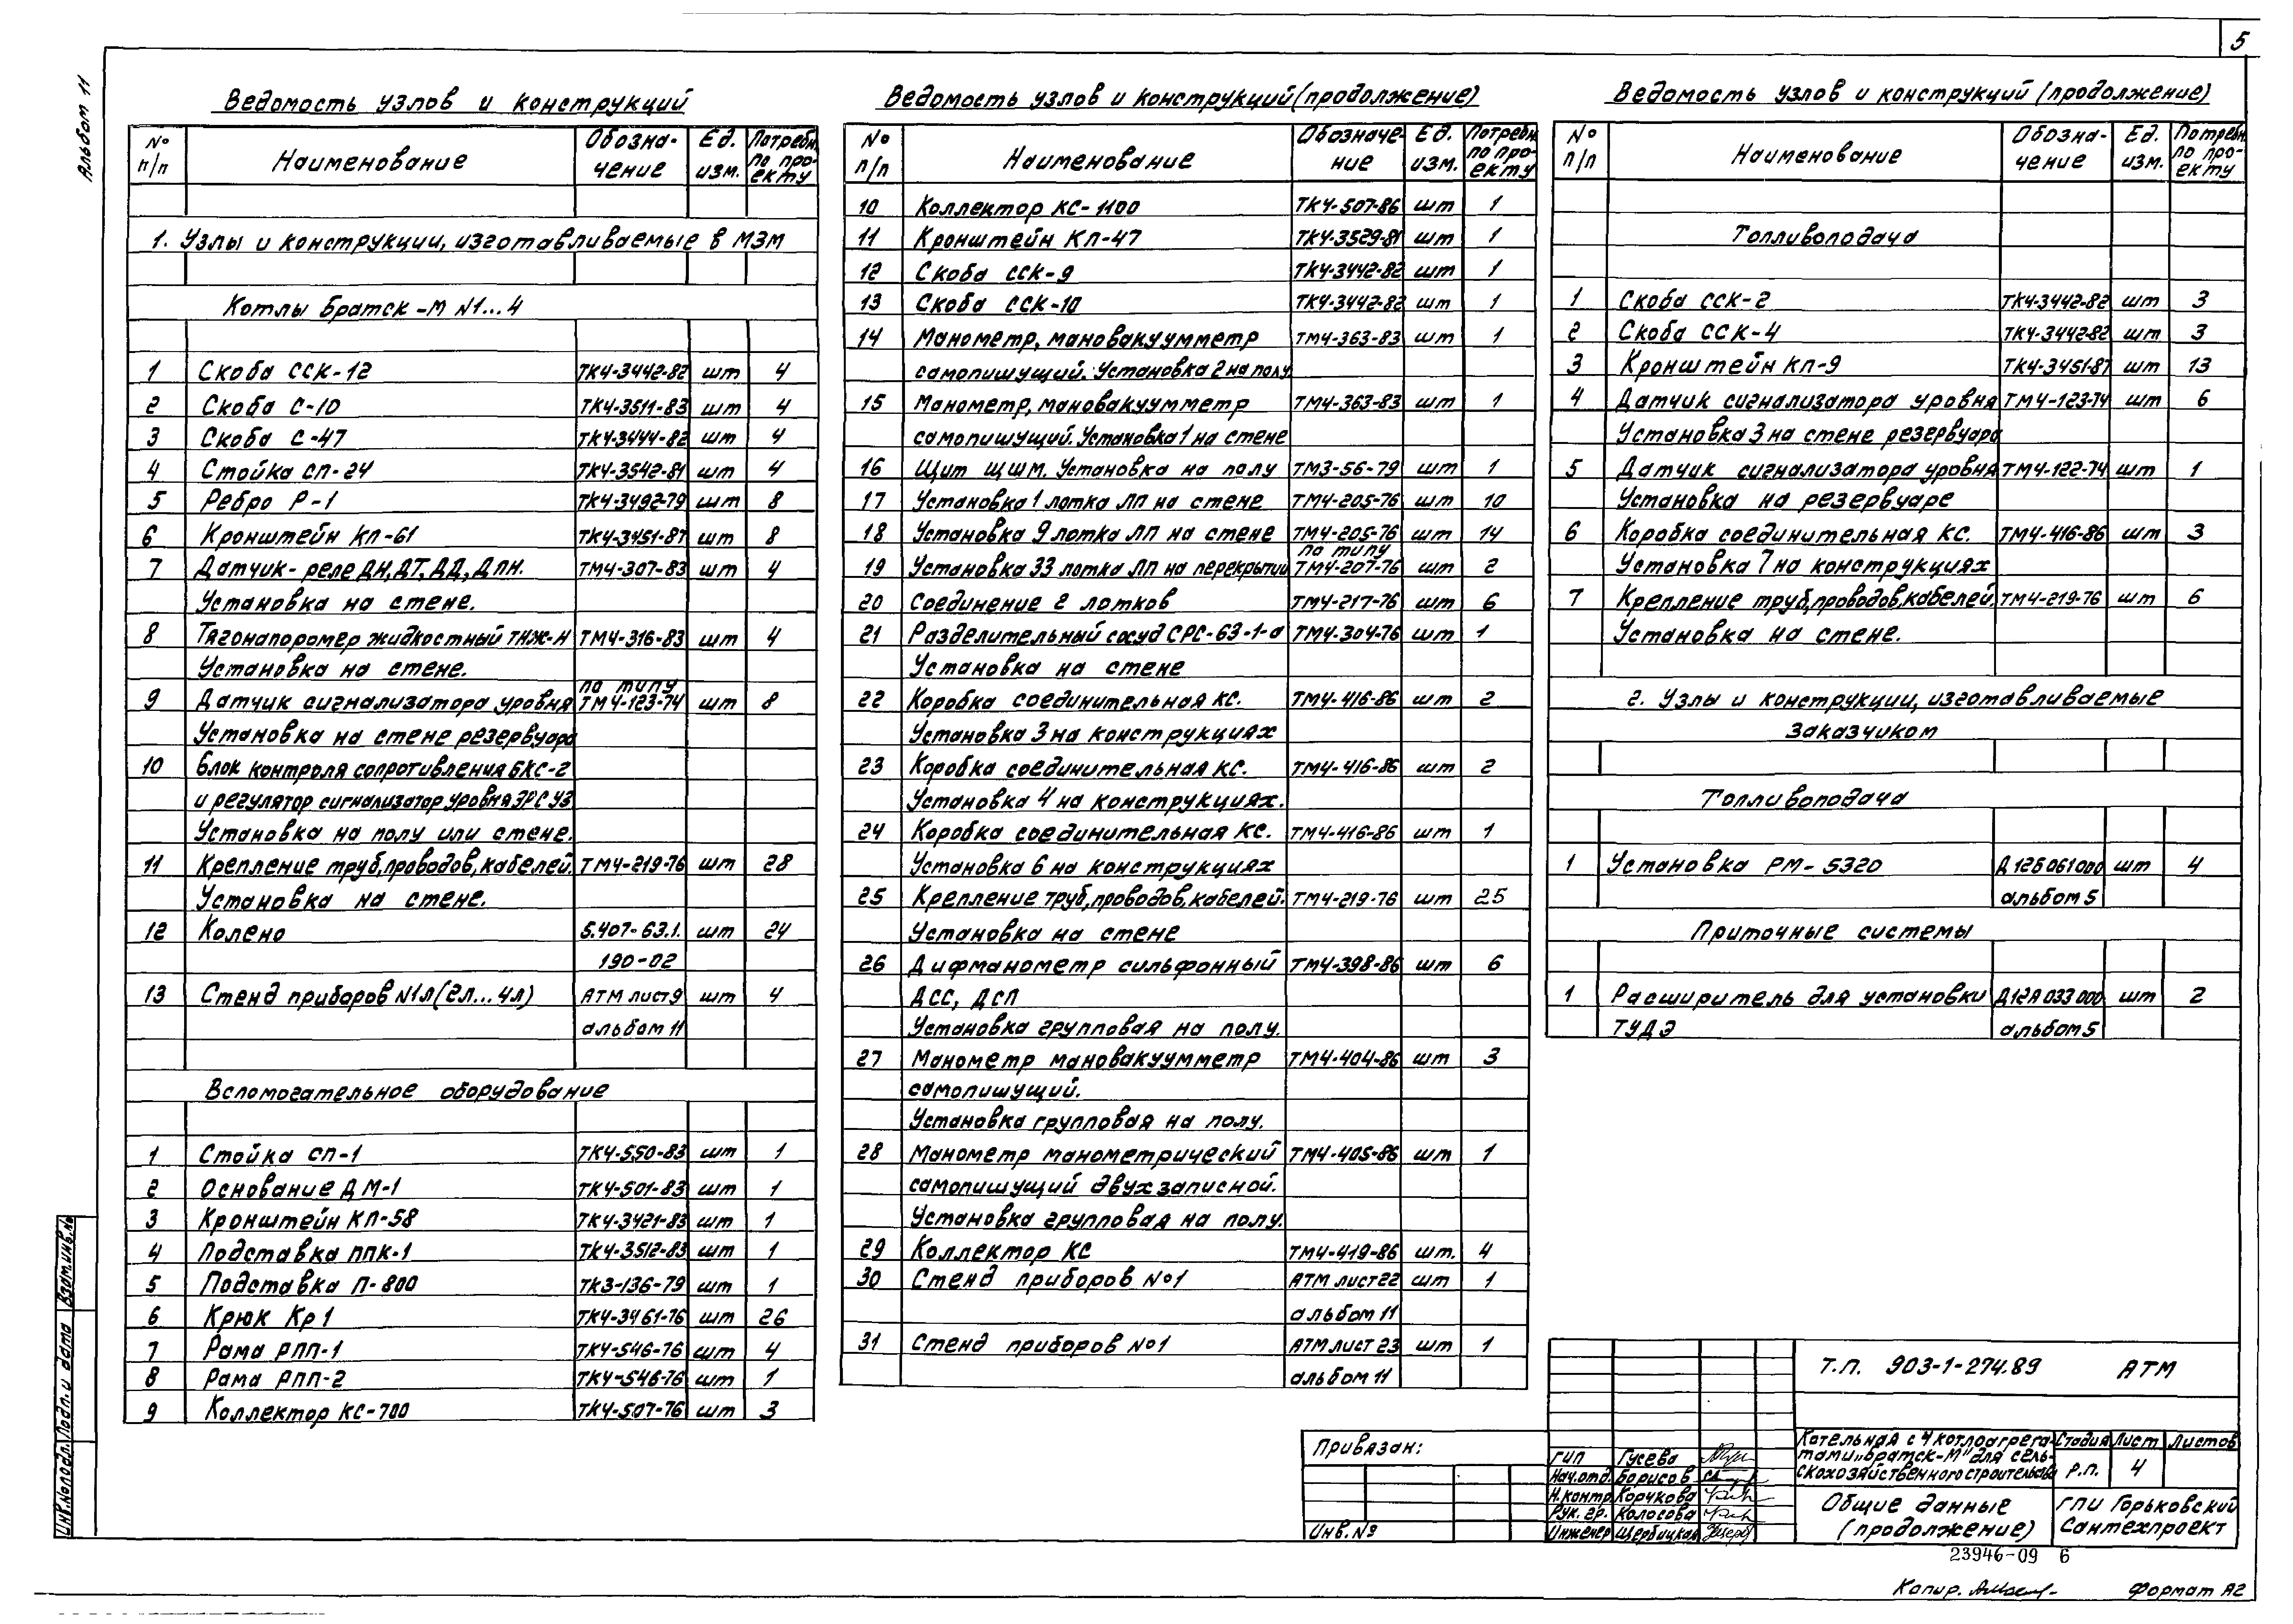 5
Альбом 11
Ведомость узлов и конструкций
№ п/п Наименование Обозна-чение Ед. изм. Потребн. по про-екту
1. Узлы и конструкции, изготавливаемые в МЗМ
Котлы Братск-М №1...4
1 Скоба ССК-12 ТК4-3442-82 шт 4
2 Скоба С-10 ТК4-3511-83 шт 4
3 Скоба С-47 ТК4-3444-82 шт 4
4 Стойка СП-24 ТК4-3542-81 шт 4
5 Ребро Р-1 ТК4-3492-79 шт 8
6 Кронштейн КП-61 ТК4-3451-87 шт 8
7 Датчик-реле ДН, ДТ, ДД, ДПН. ТМ4-307-83 шт 4
Установка на стене.
8 Тягонапоромер жидкостный ТНЖ-Н ТМ4-316-83 шт 4
Установка на стене.
9 Датчик сигнализатора уровня по типу ТМ4-123-74 шт 8
Установка на стене резервуара
10 Блок контроля сопротивления БКС-2
и регулятор сигнализатор уровня ЭРСУЗ
Установка на полу или стене.
11 Крепление труб, проводов, кабелей. ТМ4-219-76 шт 28
Установка на стене.
12 Колено 5.407-63.1. шт 24
190-02
13 Стенд приборов №1л (2л...4л) АТМ лист 9 шт 4
альбом 11
Вспомогательное оборудование
1 Стойка СП-1 ТК4-550-83 шт 1
2 Основание ДМ-1 ТК4-501-83 шт 1
3 Кронштейн КП-58 ТК4-3421-83 шт 1
4 Подставка ППК-1 ТК4-3512-83 шт 1
5 Подставка П-800 ТК3-136-79 шт 1
6 Крюк Кр1 ТК4-3461-76 шт 26
7 Рама РПП-1 ТК4-546-76 шт 4
8 Рама РПП-2 ТК4-546-76 шт 1
9 Коллектор КС-700 ТК4-507-76 шт 3
Ведомость узлов и конструкций (продолжение)
№ п/п Наименование Обозначе-ние Ед. изм. Потребн. по про-екту
10 Коллектор КС-1100 ТК4-507-86 шт 1
11 Кронштейн КП-47 ТК4-3529-81 шт 1
12 Скоба ССК-9 ТК4-3442-82 шт 1
13 Скоба ССК-10 ТК4-3442-82 шт 1
14 Манометр, мановакуумметр ТМ4-363-83 шт 1
самопишущий. Установка 2 на полу
15 Манометр, мановакуумметр ТМ4-363-83 шт 1
самопишущий. Установка 1 на стене
16 Щит ЩШМ. Установка на полу ТМ3-56-79 шт 1
17 Установка 1 лотка ЛП на стене ТМ4-205-76 шт 10
18 Установка 9 лотка ЛП на стене ТМ4-205-76 шт 14
19 Установка 33 лотка ЛП на перекрытии по типу ТМ4-207-76 шт 2
20 Соединение 2 лотков ТМ4-217-76 шт 6
21 Разделительный сосуд СРС-63-1-а ТМ4-304-76 шт 1
Установка на стене
22 Коробка соединительная КС. ТМ4-416-86 шт 2
Установка 3 на конструкциях
23 Коробка соединительная КС. ТМ4-416-86 шт 2
Установка 4 на конструкциях.
24 Коробка соединительная КС. ТМ4-416-86 шт 1
Установка 6 на конструкциях
25 Крепление труб, проводов, кабелей. ТМ4-219-76 шт 25
Установка на стене
26 Дифманометр сильфонный ТМ4-398-86 шт 6
ДСС, ДСП
Установка групповая на полу.
27 Манометр мановакуумметр ТМ4-404-86 шт 3
самопишущий.
Установка групповая на полу.
28 Манометр манометрический ТМ4-405-86 шт 1
самопишущий двухзаписной.
Установка групповая на полу.
29 Коллектор КС ТМ4-419-86 шт. 4
30 Стенд приборов №1 АТМ лист 22 шт 1
альбом 11
31 Стенд приборов №1 АТМ лист 23 шт 1
альбом 11
Ведомость узлов и конструкций (продолжение)
№ п/п Наименование Обозна-чение Ед. изм. Потребн. по про-екту
Топливоподача
1 Скоба ССК-2 ТК4-3442-82 шт 3
2 Скоба ССК-4 ТК4-3442-82 шт 3
3 Кронштейн КП-9 ТК4-3451-87 шт 13
4 Датчик сигнализатора уровня ТМ4-123-74 шт 6
Установка 3 на стене резервуара
5 Датчик сигнализатора уровня ТМ4-122-74 шт 1
Установка на резервуаре
6 Коробка соединительная КС. ТМ4-416-86 шт 3
Установка 7 на конструкциях
7 Крепление труб, проводов, кабелей. ТМ4-219-76 шт 6
Установка на стене.
2. Узлы и конструкции, изготавливаемые
заказчиком
Топливоподача
1 Установка РМ-5320 Д12Б061000 шт 4
альбом 5
Приточные системы
1 Расширитель для установки Д12А033000 шт 2
ТУДЭ альбом 5
Взам.инв.№
Подп. и дата
Инв.№подл.
Привязан:
Инв.№
Т.П. 903-1-274.89 АТМ
ГИП Гусева
Нач.отд. Борисов
Н.контр. Корчкова
Рук.гр. Колосова
Инженер Щербицкая
Котельная с 4 котлоагрега-
тами "Братск-М" для сель-
скохозяйственного строительства
Стадия Лист Листов
Р.П. 4
Общие данные
(продолжение)
ГПИ Горьковский
Сантехпроект
23946-09 6
Копир.
Формат А2